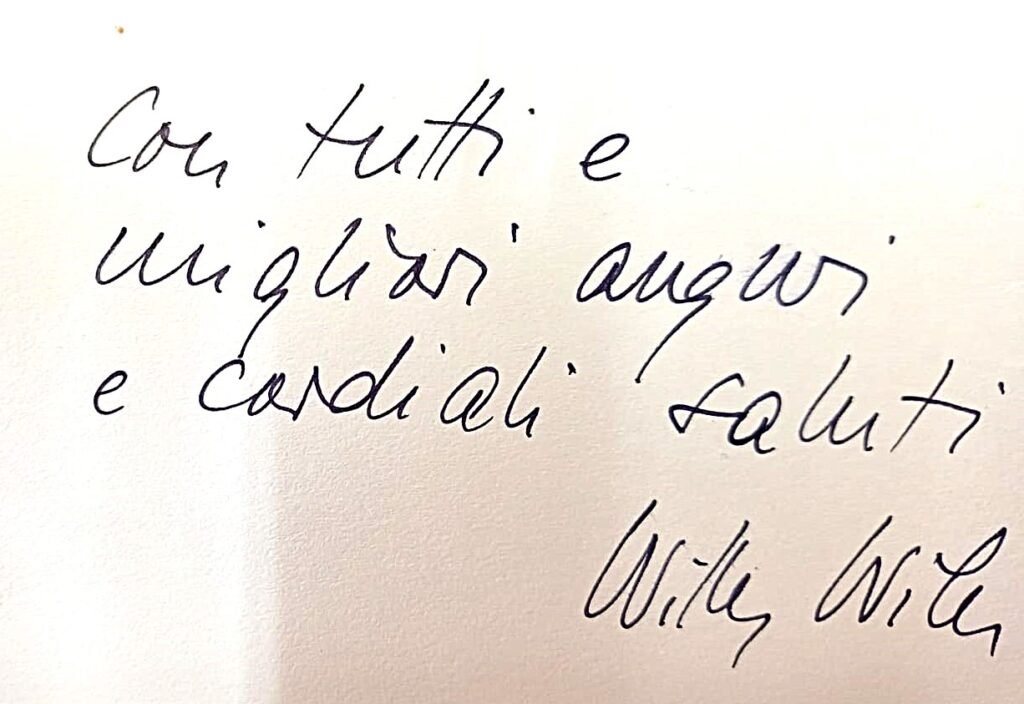 Con tutti e
migliori auguri
e cordiali saluti
Willy